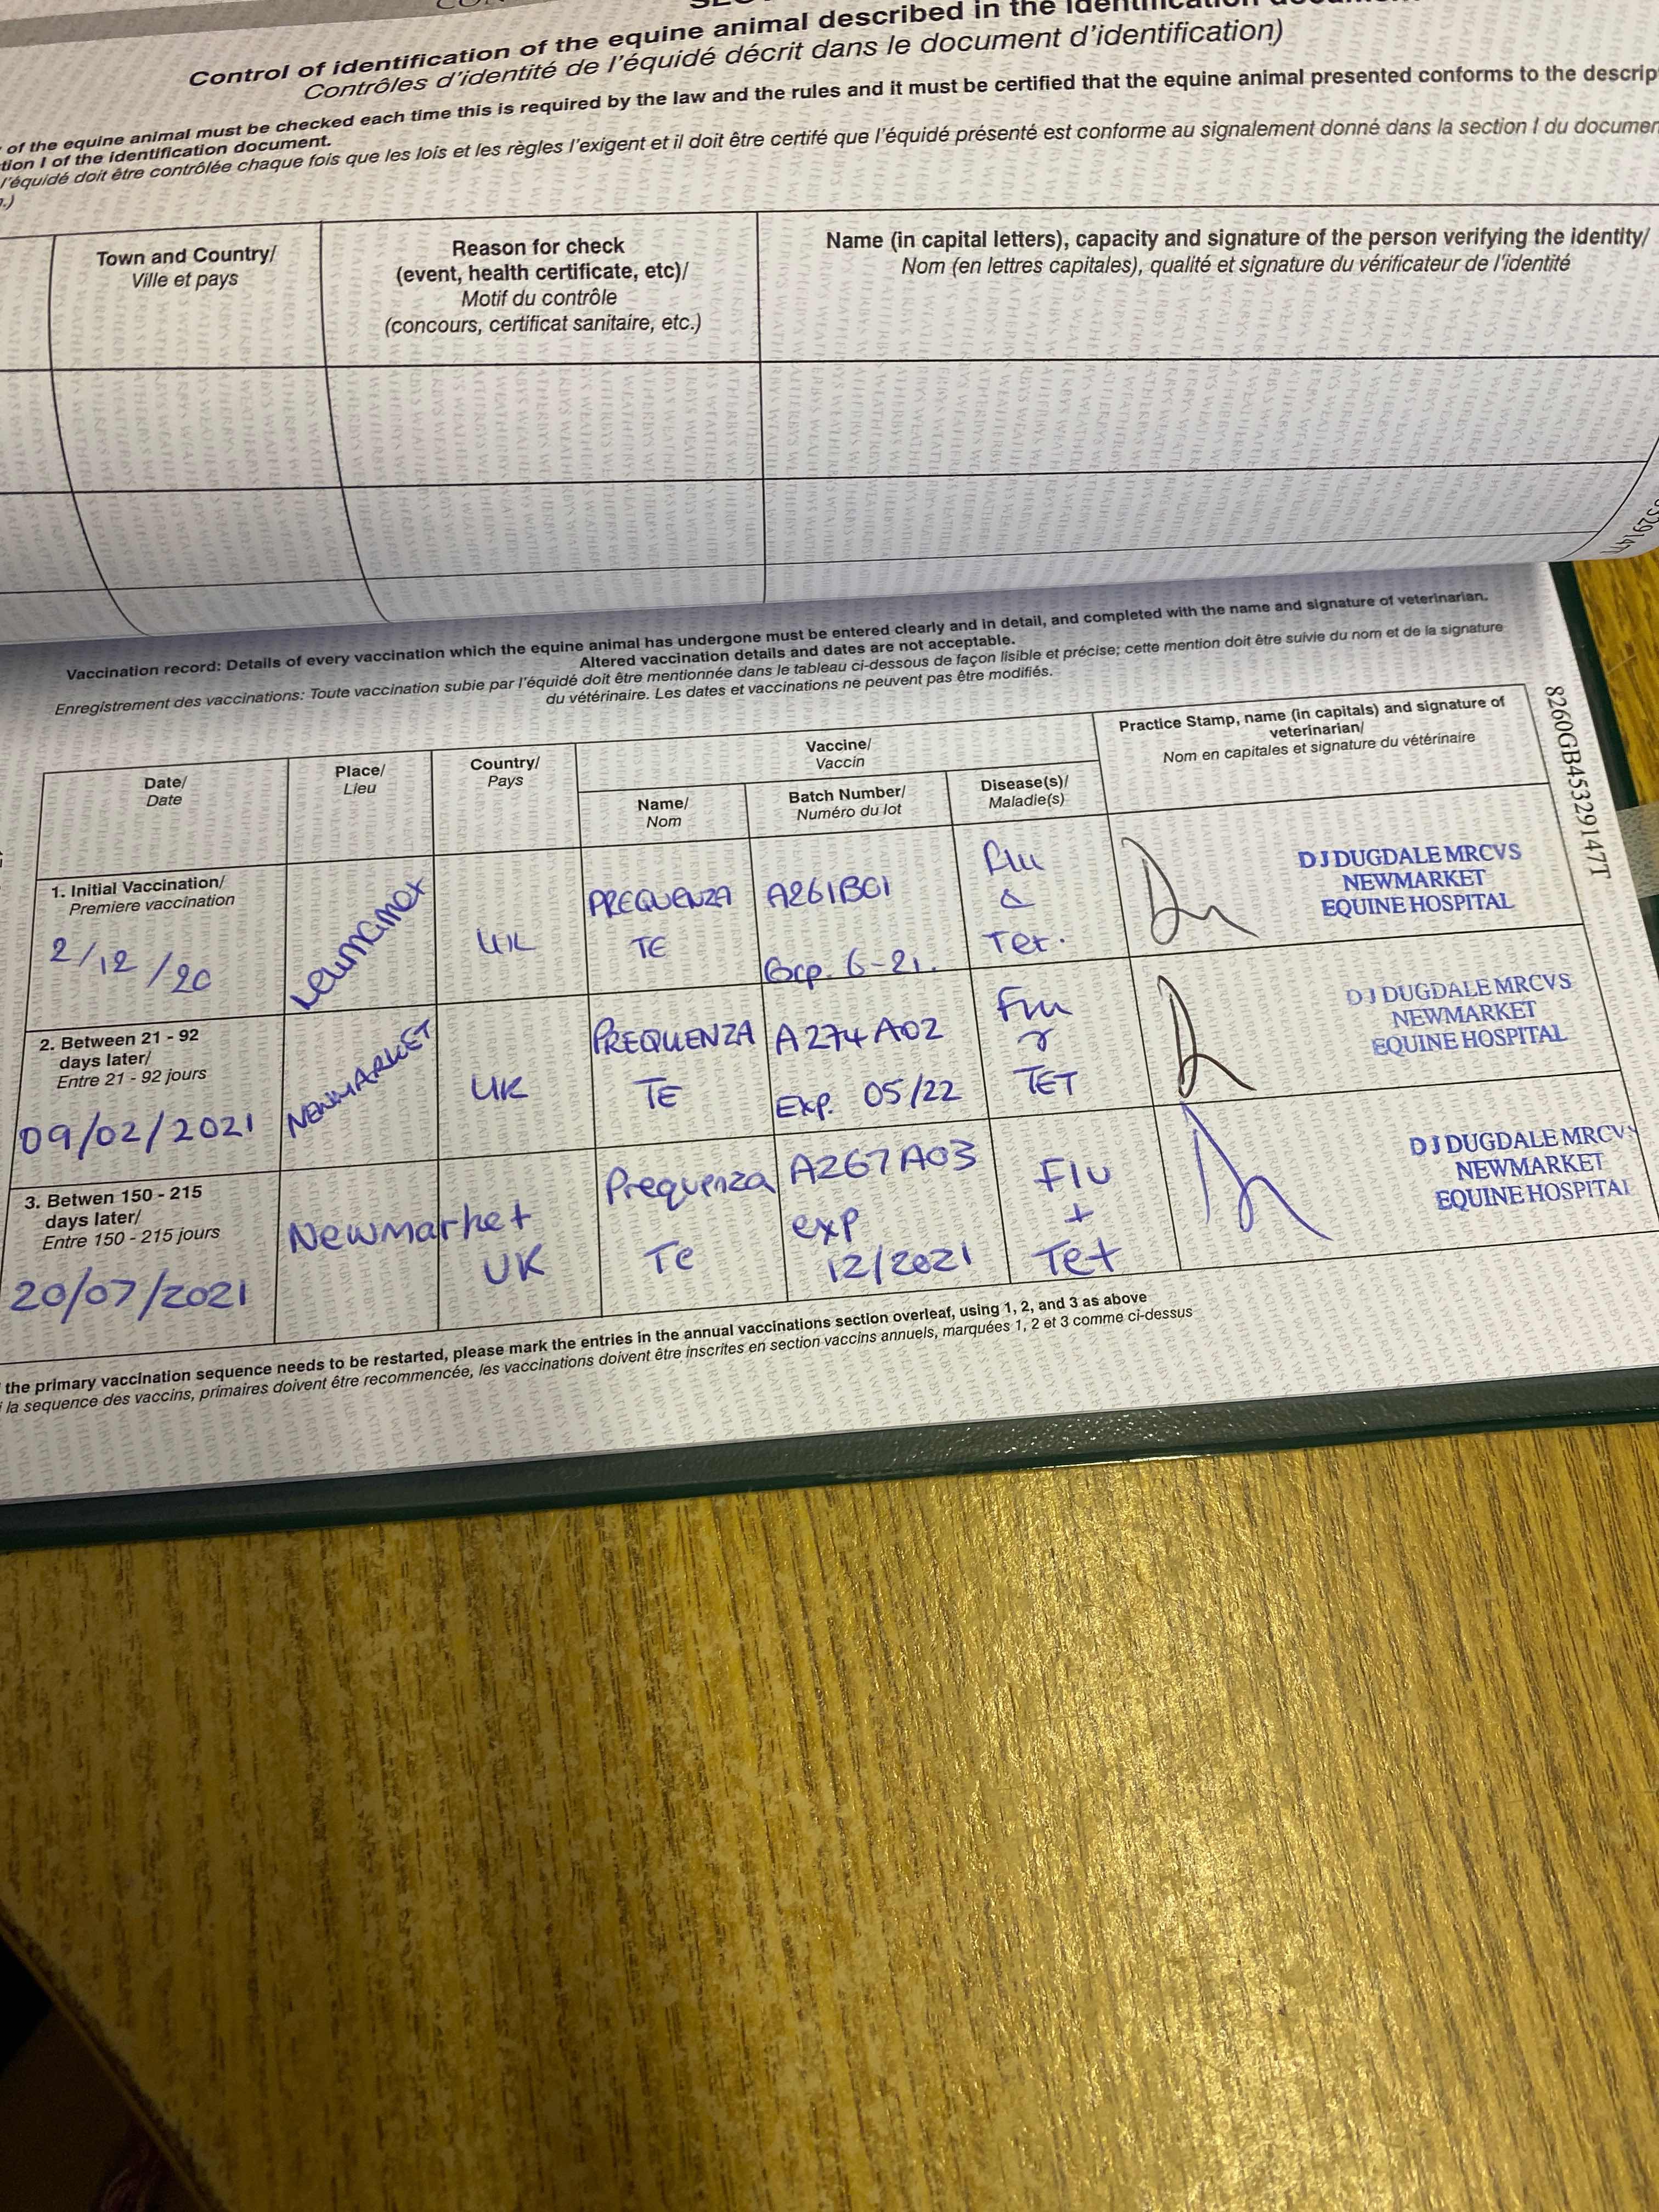 Control of identification of the equine animal described in the
Contrôles d'identité de l'équidé décrit dans le document d'identification)
of the equine animal must be checked each time this is required by the law and the rules and it must be certified that the equine animal presented conforms to the descrip
tion I of the identification document.
l'équidé doit être contrôlée chaque fois que les lois et les règles l'exigent et il doit être certifé que l'équidé présenté est conforme au signalement donné dans la section I du documen
Town and Country/
Ville et pays
Reason for check
(event, health certificate, etc)/
Motif du contrôle
(concours, certificat sanitaire, etc.)
Name (in capital letters), capacity and signature of the person verifying the identity/
Nom (en lettres capitales), qualité et signature du vérificateur de l'identité
Vaccination record: Details of every vaccination which the equine animal has undergone must be entered clearly and in detail, and completed with the name and signature of veterinarian.
Altered vaccination details and dates are not acceptable.
Enregistrement des vaccinations: Toute vaccination subie par l'équidé doit être mentionnée dans le tableau ci-dessous de façon lisible et précise; cette mention doit être suivie du nom et de la signature
du vétérinaire. Les dates et vaccinations ne peuvent pas être modifiés.
8260GB45329147T
Date/
Date
Place/
Lieu
Country/
Pays
Vaccine/
Vaccin
Name/
Nom
Batch Number/
Numéro du lot
Disease(s)/
Maladie(s)
Practice Stamp, name (in capitals) and signature of
veterinarian/
Nom en capitales et signature du vétérinaire
1. Initial Vaccination/
Premiere vaccination
2/12/20
UK
PREQUENZA
TE
A261B01
Exp. 6-21.
Flu
&
Tet.
DJ DUGDALE MRCVS
NEWMARKET
EQUINE HOSPITAL
2. Between 21 - 92
days later/
Entre 21 - 92 jours
09/02/2021
NEWMARKET
UK
PREQUENZA
TE
A274A02
Exp. 05/22
Flu
TET
DJ DUGDALE MRCVS
NEWMARKET
EQUINE HOSPITAL
3. Betwen 150 - 215
days later/
Entre 150 - 215 jours
20/07/2021
Newmarket
UK
Prequenza
Te
A267A03
exp
12/2021
Flu
+
Tet
DJ DUGDALE MRCVS
NEWMARKET
EQUINE HOSPITAL
the primary vaccination sequence needs to be restarted, please mark the entries in the annual vaccinations section overleaf, using 1, 2, and 3 as above
la sequence des vaccins, primaires doivent être recommencée, les vaccinations doivent être inscrites en section vaccins annuels, marquées 1, 2 et 3 comme ci-dessus